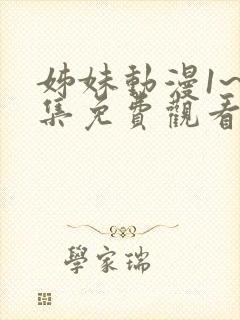 姊妹動漫1~
集免費觀看
學家瑞